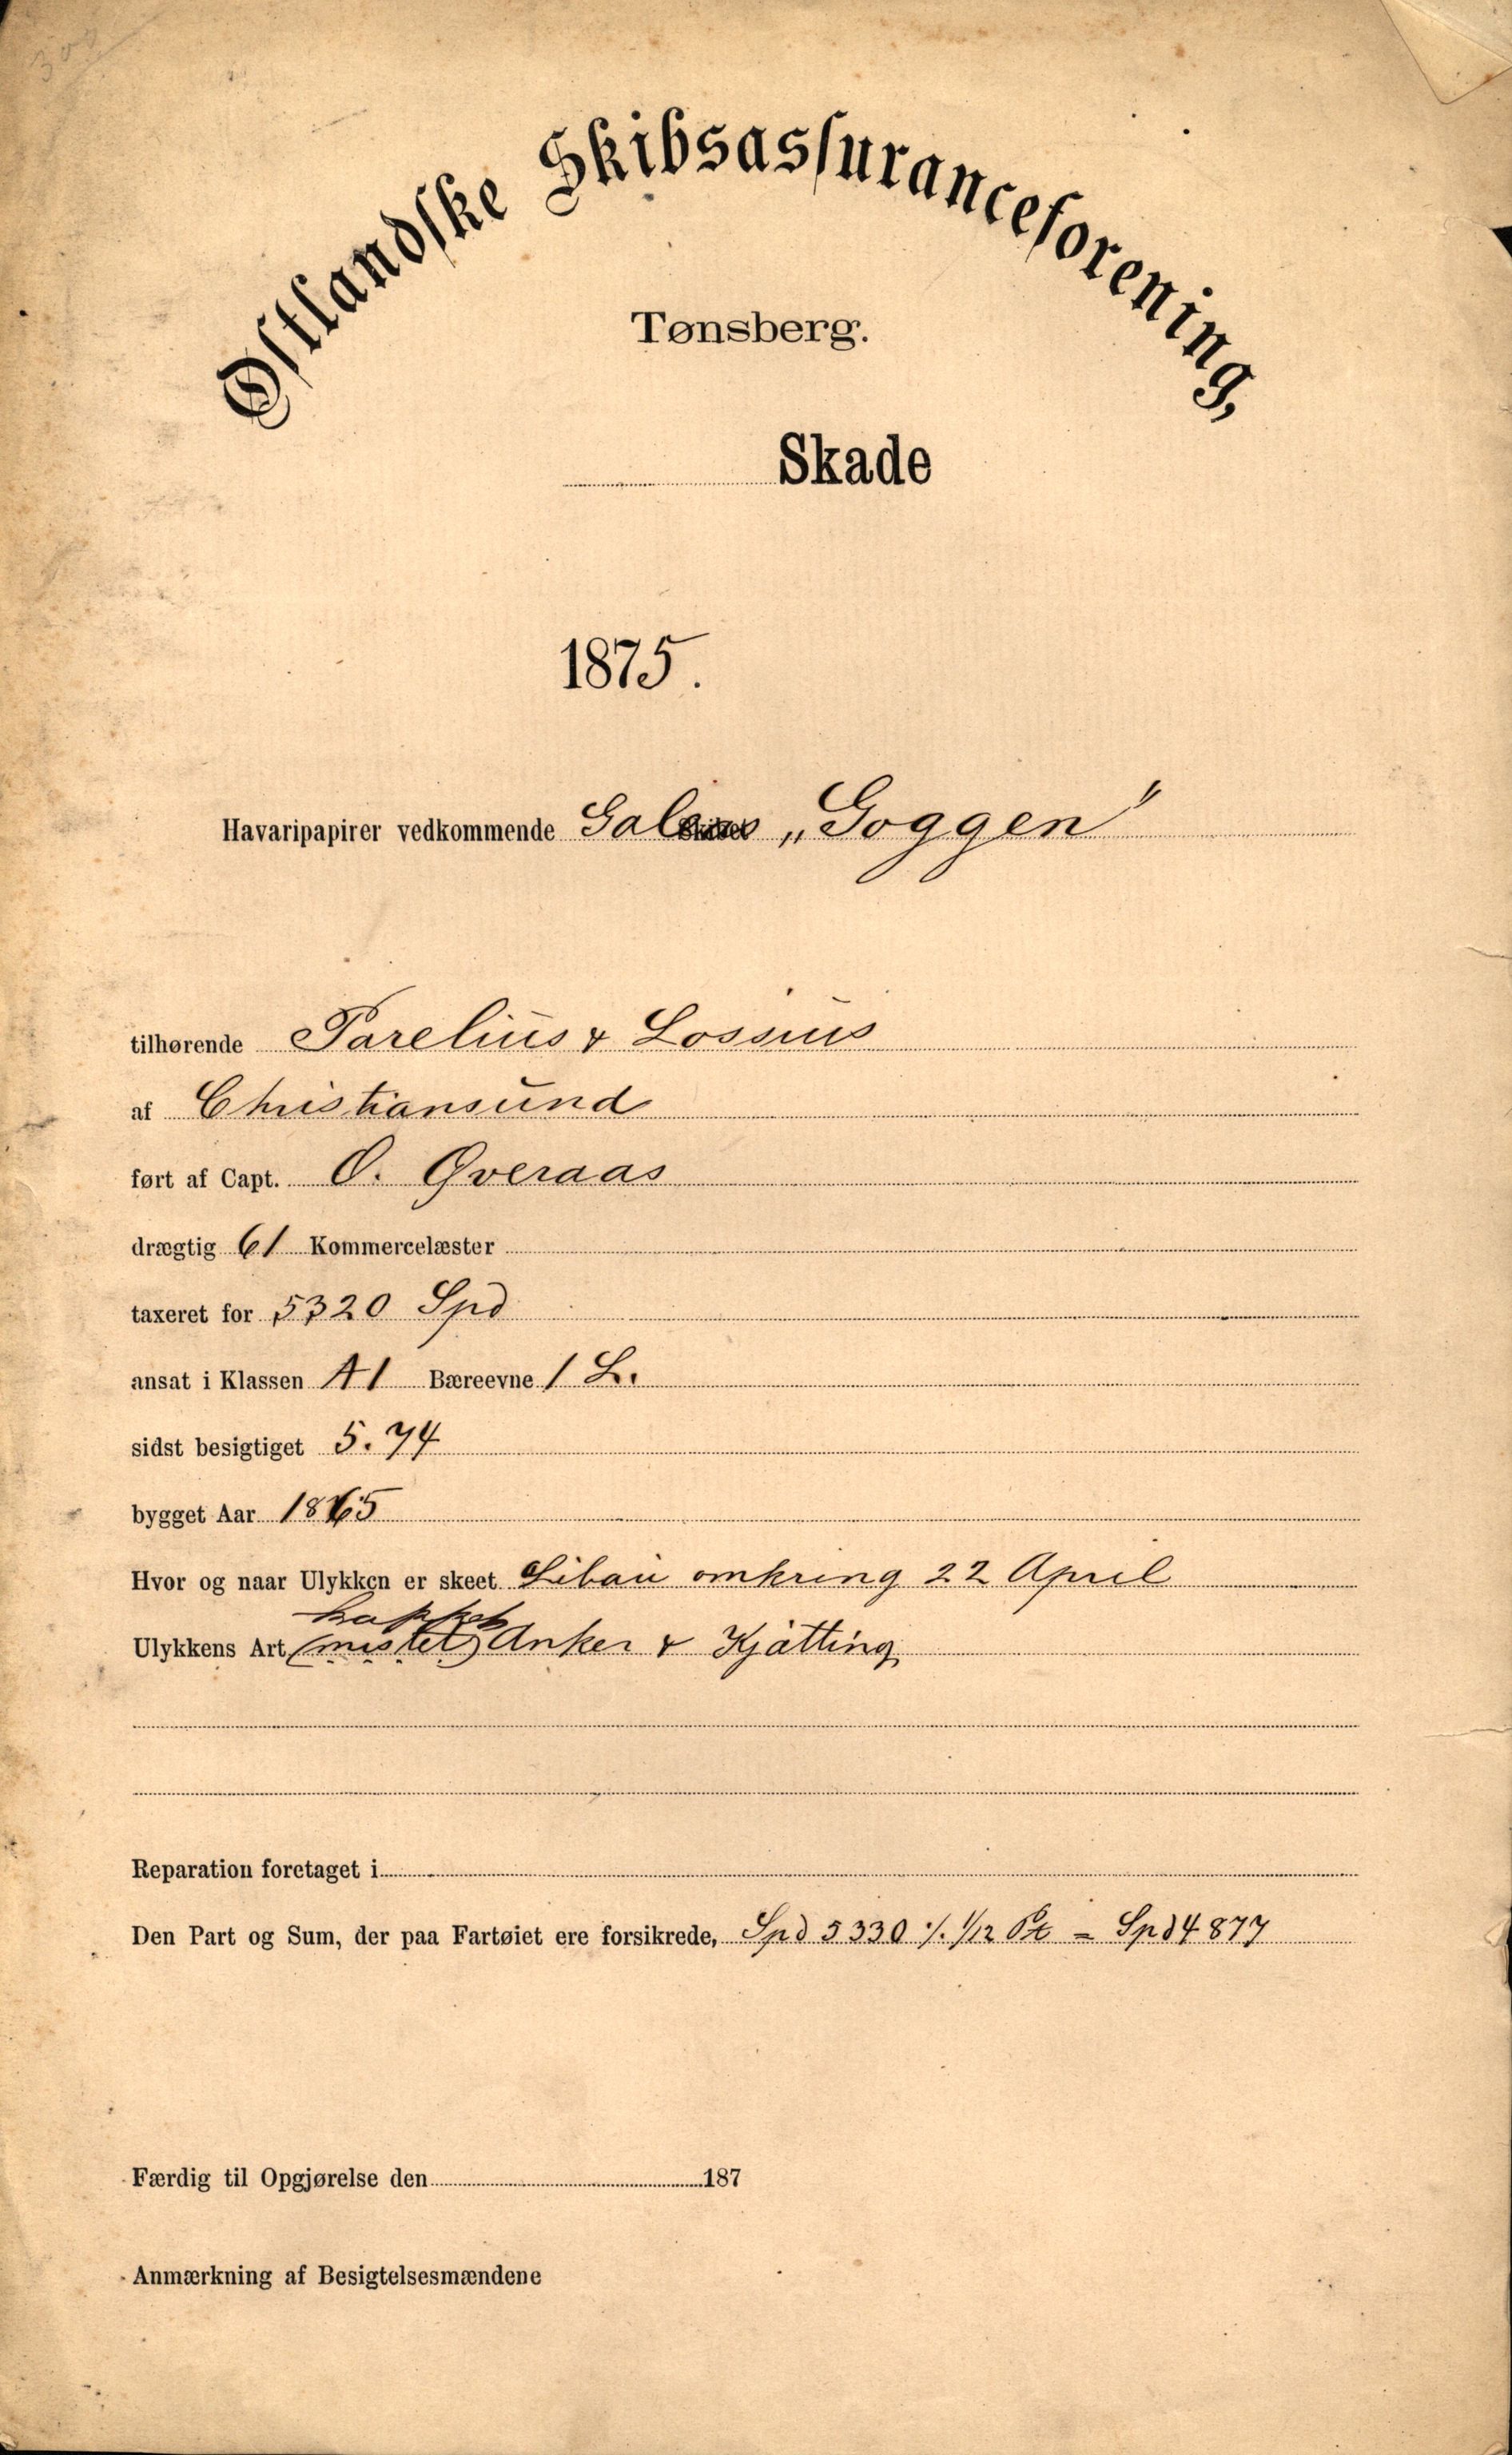 Østlandske Skibsassuranceforening,
Tønsberg.
Skade
1875.
Havaripapirer vedkommende Galeas „Goggen"
tilhørende Parelius & Lossius
af Christiansund
ført af Capt. O. Qveraas
drægtig 61 Kommercelæster
taxeret for 5320 Spd
ansat i Klassen A1 Bæreevne 1 L.
sidst besigtiget 5.74
bygget Aar 1865
Hvor og naar Ulykken er skeet Libau omkring 22 April
kappet
Ulykkens Art (mistet) Anker & Kjätting
Reparation foretaget i
Den Part og Sum, der paa Fartøiet ere forsikrede, Spd 5330 ./. 1/12 Pt = Spd 4877
Færdig til Opgjørelse den 187
Anmærkning af Besigtelsesmændene